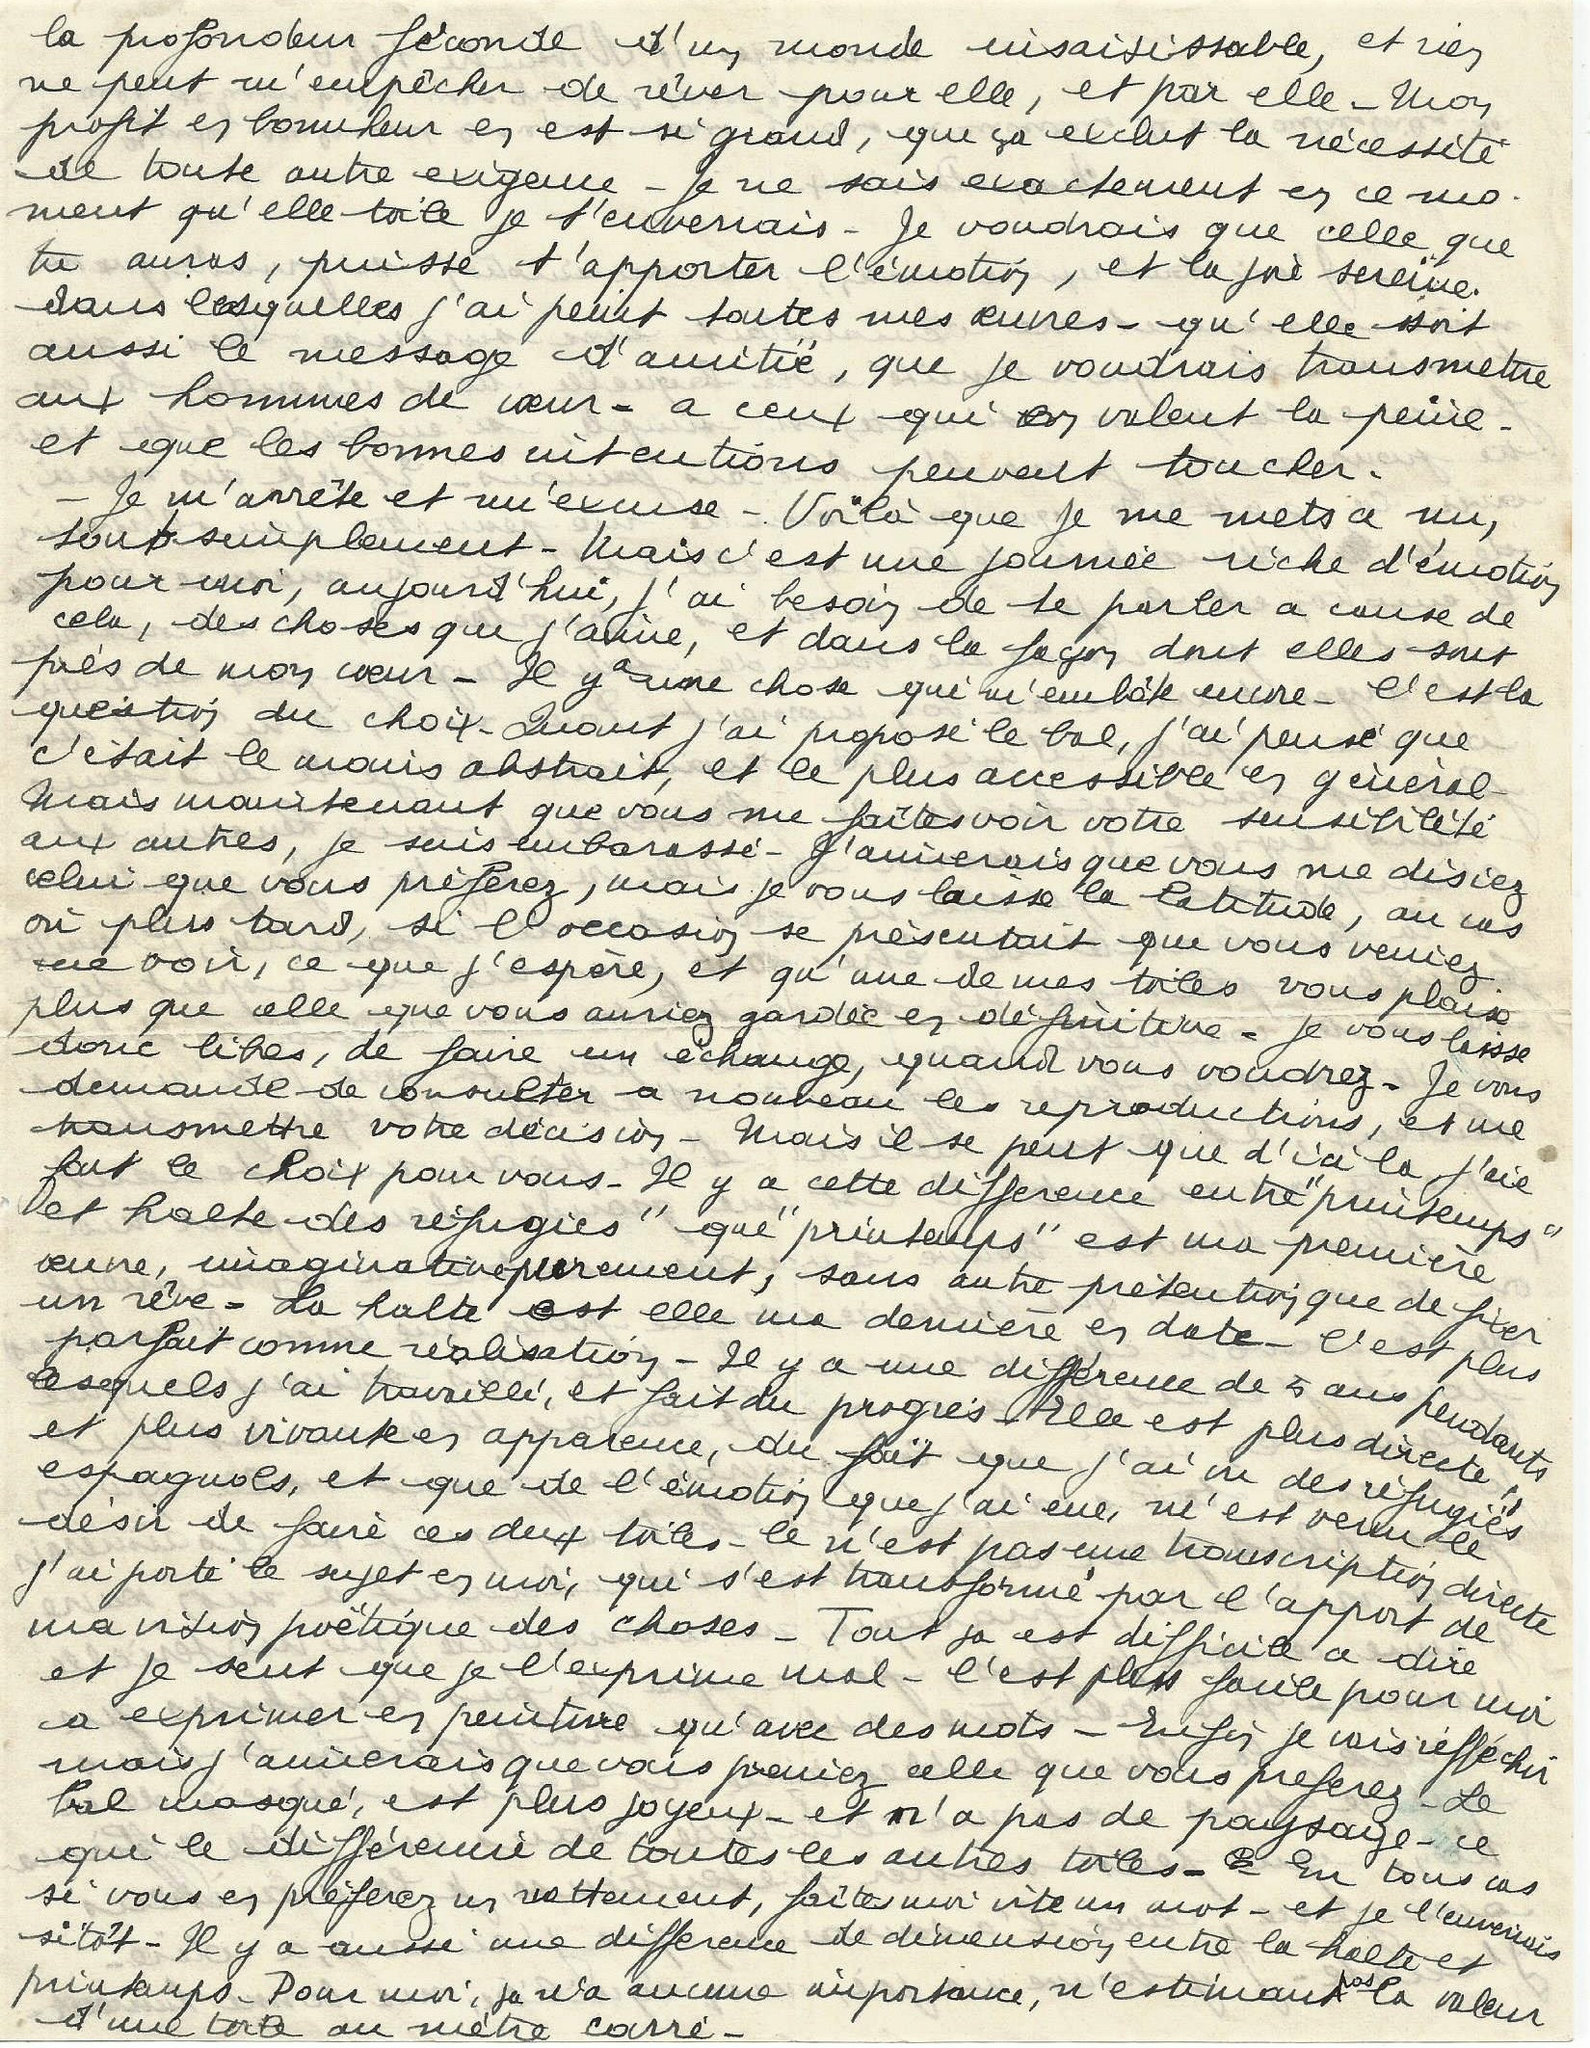 la profondeur féconde d'un monde insaisissable, et rien
ne peut m'empêcher de rêver pour elle, et par elle - Mon
profit en bonheur en est si grand, que ça exclut la nécessité
de toute autre exigence - Je ne sais exactement en ce mo-
ment qu'elle toile je t'enverrais - Je voudrais que celle que
tu auras, puisse t'apporter l'émotion, et la joie sereine.
dans lesquelles j'ai peint toutes mes œuvres - qu'elle soit
aussi le message d'amitié, que je voudrais transmettre
aux hommes de cœur - a ceux qui en valent la peine -
et que les bonnes intentions peuvent toucher.
- Je m'arrête et m'excuse - Voilà que je me mets a nu,
tout simplement - Mais c'est une journée riche d'émotion
pour moi, aujourd'hui, j'ai besoin de te parler a cause de
cela, des choses que j'aime, et dans la façon dont elles sont
près de mon cœur - Il y a une chose qui m'embête encore - C'est la
question du choix - Quant j'ai proposé le bal, j'ai pensé que
c'était le moins abstrait, et le plus accessible en général -
Mais maintenant que vous me faîtes voir votre sensibilité
aux autres, je suis embarassé - J'aimerais que vous me disiez
celui que vous préferez, mais je vous laisse la latitude, au cas
où plus tard, si l'occasion se présentait que vous veniez
me voir, ce que j'espère, et qu'une de mes toiles vous plaise
plus que celle que vous auriez gardée en définitive - Je vous laisse
donc libes, de faire un échange, quand vous voudrez - Je vous
demande de consulter a nouveau les reproductions, et me
transmettre votre décision - Mais il se peut que d'ici la j'aie
fait le choix pour vous - Il y a cette différence entre "printemps"
et halte des réfugiés" que "printemps" est ma première
œuvre, imaginative purement, sans autre prétention que de fixer
un rêve - La halte est elle ma dernière en date - C'est plus
parfait comme réalisation - Il y a une différence de 5 ans pendants
lesquels j'ai travaillé, et fait du progrès - Elle est plus directe,
et plus vivante en apparence, du fait que j'ai vu des réfugiés
espagnols, et que de l'émotion que j'ai eue, m'est venu le
désir de faire ces deux toiles - Ce n'est pas une transcription directe
j'ai porté le sujet en moi, qui s'est transformé par l'apport de
ma vision poétique des choses - Tout ça est difficile a dire
et je sent que je l'exprime mal - C'est plus facile pour moi
a exprimer en peinture qu'avec des mots - Enfin je vais réfléchir
mais j'aimerais que vous preniez celle que vous preferez - Le
bal masqué, est plus joyeux - et n'a pas de paysage - ce
qui le différencie de toutes les autres toiles - En tous cas
si vous en préferez un nettement, faîtes moi vite un mot - et je l'enverrais
sitôt - Il y a aussi une différence de dimension entre la halte et
printemps - Pour moi, ça n'a aucune importance, n'estimant pas la valeur
d'une toile au mètre carré -